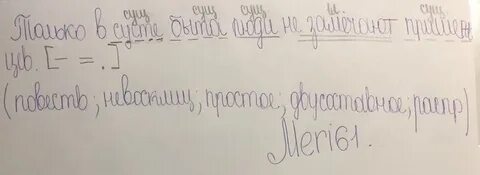 сущ сущ сущ гл. сущ
Только в суете быта люди не замечают пришель
цев. [- = .]
(повеств; невосклиц; простое; двусоставное; распр)
Meri61.